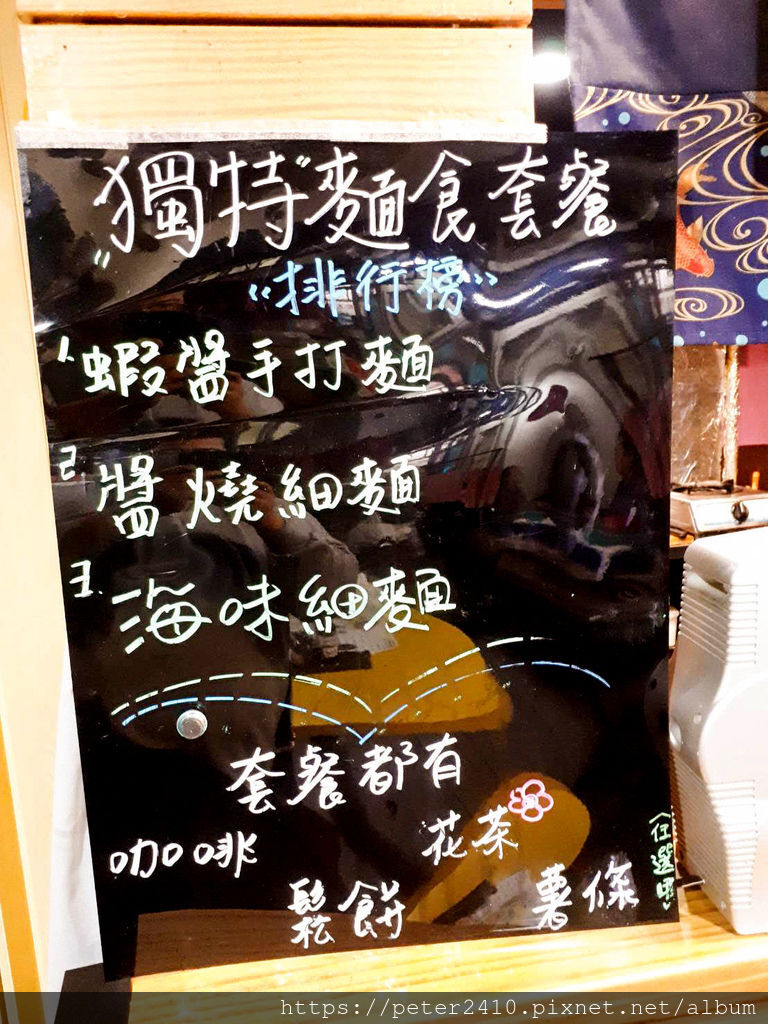 "獨特"麵食套餐
《排行榜》
1. 蝦醬手打麵
2. 醬燒細麵
3. 海味細麵
套餐都有
咖啡 花茶
鬆餅 薯條
https://peter2410.pixnet.net/album